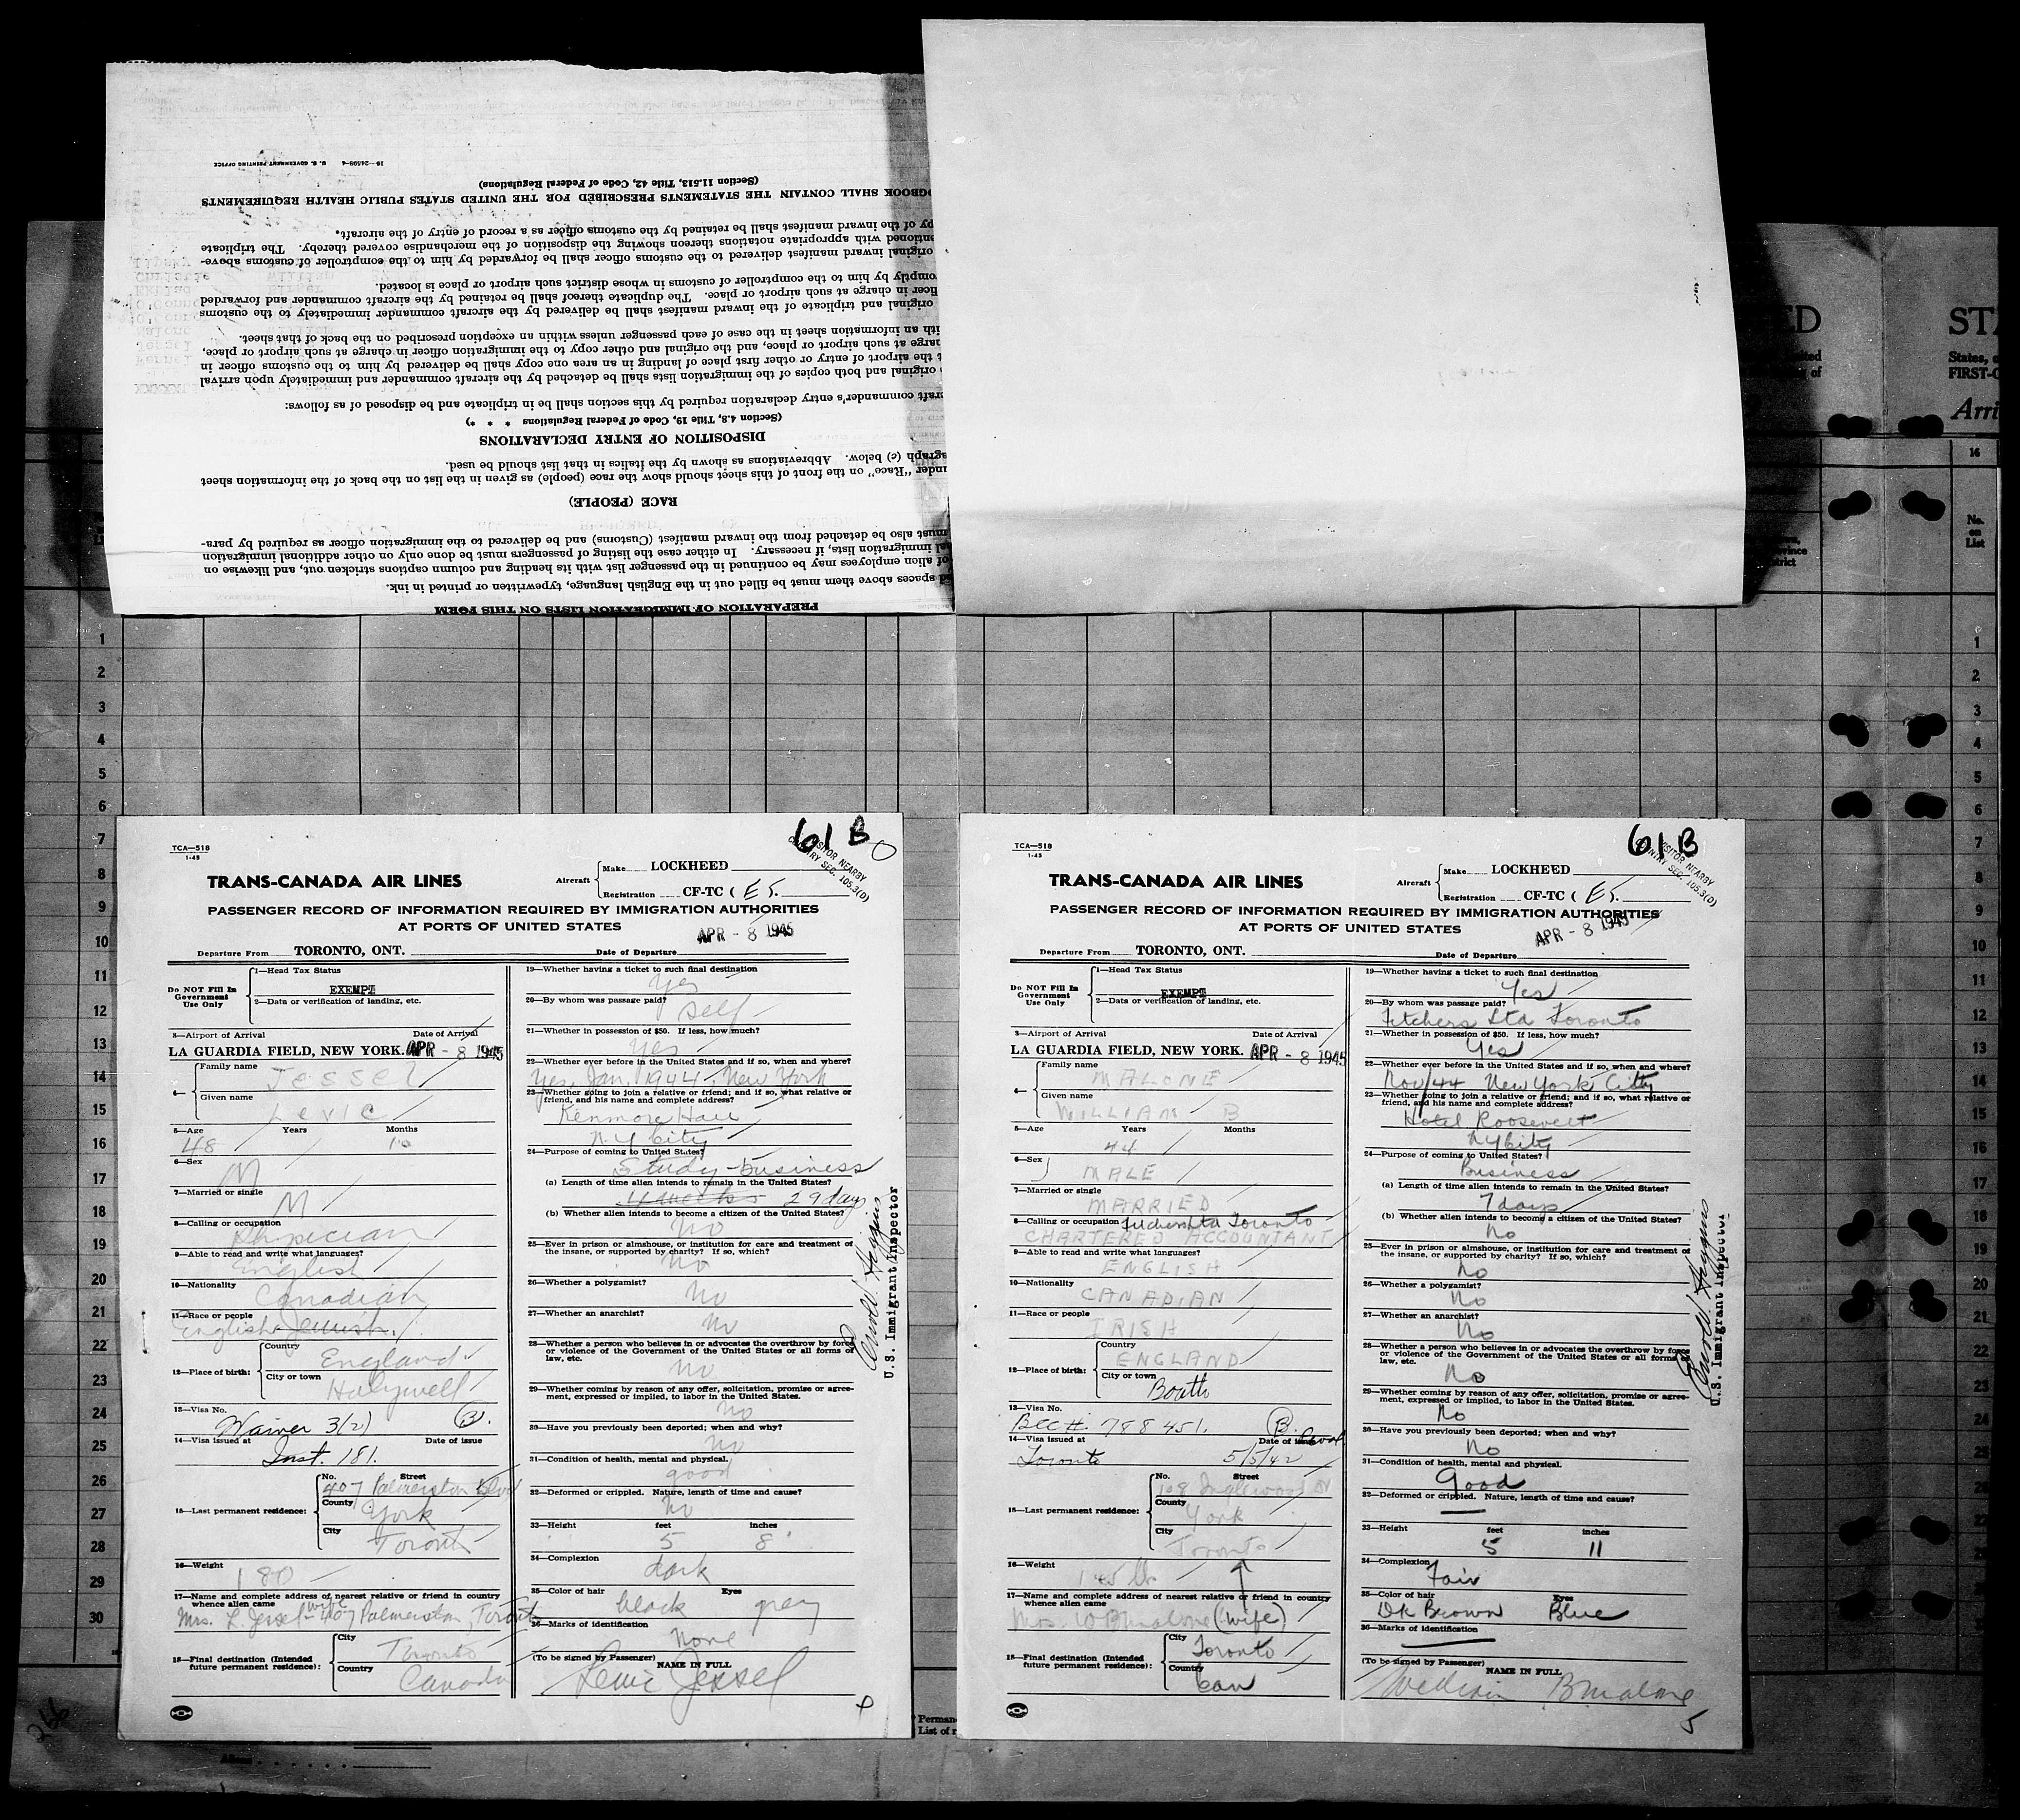 16—24598-4 U. S. GOVERNMENT PRINTING OFFICE
(Section 11.513, Title 42, Code of Federal Regulations)
OGBOOK SHALL CONTAIN THE STATEMENTS PRESCRIBED FOR THE UNITED STATES PUBLIC HEALTH REQUIREMENTS
py of the inward manifest shall be retained by the customs officer as a record of entry of the aircraft.
entioned with appropriate notations thereon showing the disposition of the merchandise covered thereby. The triplicate
original inward manifest delivered to the customs officer shall be forwarded by him to the comptroller of customs above-
omptly by him to the comptroller of customs in whose district such airport or place is located.
ficer in charge at such airport or place. The duplicate thereof shall be retained by the aircraft commander and forwarded
original and triplicate of the inward manifest shall be delivered by the aircraft commander immediately to the customs
ith an information sheet in the case of each passenger unless within an exception prescribed on the back of that sheet.
arge at such airport or place, and the original and other copy to the immigration officer in charge at such airport or place,
t the airport of entry or other first place of landing in an area one copy shall be delivered by him to the customs officer in
original and both copies of the immigration lists shall be detached by the aircraft commander and immediately upon arrival
raft commander's entry declaration required by this section shall be in triplicate and be disposed of as follows:
(Section 4.8, Title 19, Code of Federal Regulations * * *)
DISPOSITION OF ENTRY DECLARATIONS
agraph (c) below. Abbreviations as shown by the italics in that list should be used.
under "Race" on the front of this sheet should show the race (people) as given in the list on the back of the information sheet
RACE (PEOPLE)
must also be detached from the inward manifest (Customs) and be delivered to the immigration officer as required by para-
al immigration lists, if necessary. In either case the listing of passengers must be done only on other additional immigration
of alien employees may be continued in the passenger list with its heading and column captions stricken out, and likewise on
d spaces above them must be filled out in the English language, typewritten or printed in ink.
PREPARATION OF IMMIGRATION LISTS ON THIS FORM
ED
STA
States, o
FIRST-C
Arri
16
No. on List
1
2
3
4
5
6
7
8
9
10
11
12
13
14
15
16
17
18
19
20
21
22
23
24
25
26
27
28
29
30
266
TCA—518
1-45
61B
VISITOR NEARBY
COUNTRY SEC. 105.3(D)
TRANS-CANADA AIR LINES
Aircraft
Make LOCKHEED
Registration CF-TC ( E5.
PASSENGER RECORD OF INFORMATION REQUIRED BY IMMIGRATION AUTHORITIES
AT PORTS OF UNITED STATES
APR - 8 1945
Departure From TORONTO, ONT. Date of Departure
Do NOT Fill In Government Use Only
1—Head Tax Status
EXEMPT
2—Data or verification of landing, etc.
3—Airport of Arrival Date of Arrival
LA GUARDIA FIELD, NEW YORK. APR - 8 1945
4— Family name
Jessel
Given name
5—Age Years Months
48 10
6—Sex
M
7—Married or single
M
8—Calling or occupation
Physician
9—Able to read and write what languages?
English
10—Nationality
Canadian
11—Race or people
English Jewish.
12—Place of birth: Country
England
City or town
Holywell
13—Visa No.
Waiver 3(2) B.
14—Visa issued at Date of issue
Inst. 181.
15—Last permanent residence: No. Street
407 Palmerston Blvd
County
York
City
Toronto
16—Weight
180
17—Name and complete address of nearest relative or friend in country
whence alien came
Mrs. L. Jessel wife 407 Palmerston, Toronto
18—Final destination (Intended future permanent residence): City
Toronto
Country
Canada
19—Whether having a ticket to such final destination
Yes
20—By whom was passage paid?
Self
21—Whether in possession of $50. If less, how much?
Yes
22—Whether ever before in the United States and if so, when and where?
Yes, Jan. 1944. New York
23—Whether going to join a relative or friend; and if so, what relative or
friend, and his name and complete address?
Kenmore Hall
N.Y City
24—Purpose of coming to United States?
Study - business
(a) Length of time alien intends to remain in the United States?
4 weeks 29 days
(b) Whether alien intends to become a citizen of the United States?
No
25—Ever in prison or almshouse, or institution for care and treatment of
the insane, or supported by charity? If so, which?
No
26—Whether a polygamist?
No
27—Whether an anarchist?
No
28—Whether a person who believes in or advocates the overthrow by force
or violence of the Government of the United States or all forms of
law, etc.
No
29—Whether coming by reason of any offer, solicitation, promise or agree-
ment, expressed or implied, to labor in the United States.
No
30—Have you previously been deported; when and why?
No
31—Condition of health, mental and physical.
good
32—Deformed or crippled. Nature, length of time and cause?
No
33—Height feet inches
5 8
34—Complexion
dark
35—Color of hair Eyes
black grey
36—Marks of identification
None
(To be signed by Passenger) NAME IN FULL
U.S. Immigrant Inspector
TCA—518
1-45
61B
VISITOR NEARBY
COUNTRY SEC. 105.3(D)
TRANS-CANADA AIR LINES
Aircraft
Make LOCKHEED
Registration CF-TC ( E5.
PASSENGER RECORD OF INFORMATION REQUIRED BY IMMIGRATION AUTHORITIES
AT PORTS OF UNITED STATES
APR - 8 1945
Departure From TORONTO, ONT. Date of Departure
Do NOT Fill In Government Use Only
1—Head Tax Status
EXEMPT
2—Data or verification of landing, etc.
3—Airport of Arrival Date of Arrival
LA GUARDIA FIELD, NEW YORK. APR - 8 1945
4— Family name
MALONE
Given name
WILLIAM B
5—Age Years Months
44
6—Sex
MALE
7—Married or single
MARRIED
8—Calling or occupation Toronto
CHARTERED ACCOUNTANT
9—Able to read and write what languages?
ENGLISH
10—Nationality
CANADIAN
11—Race or people
IRISH
12—Place of birth: Country
ENGLAND
City or town
13—Visa No.
BCC #. 788451. B.
14—Visa issued at Date of issue
Toronto 5/5/42
15—Last permanent residence: No. Street
108 Inglewood Dr
County
York
City
Toronto
16—Weight
145 lb
17—Name and complete address of nearest relative or friend in country
whence alien came
Mrs. W B Malone (wife)
18—Final destination (Intended future permanent residence): City
Toronto
Country
Can
19—Whether having a ticket to such final destination
Yes
20—By whom was passage paid?
Ltd Toronto
21—Whether in possession of $50. If less, how much?
Yes
22—Whether ever before in the United States and if so, when and where?
Nov/44 New York City
23—Whether going to join a relative or friend; and if so, what relative or
friend, and his name and complete address?
Hotel Roosevelt
NY City
24—Purpose of coming to United States?
Business
(a) Length of time alien intends to remain in the United States?
7 days
(b) Whether alien intends to become a citizen of the United States?
No
25—Ever in prison or almshouse, or institution for care and treatment of
the insane, or supported by charity? If so, which?
No
26—Whether a polygamist?
No
27—Whether an anarchist?
No
28—Whether a person who believes in or advocates the overthrow by force
or violence of the Government of the United States or all forms of
law, etc.
No
29—Whether coming by reason of any offer, solicitation, promise or agree-
ment, expressed or implied, to labor in the United States.
No
30—Have you previously been deported; when and why?
No
31—Condition of health, mental and physical.
Good
32—Deformed or crippled. Nature, length of time and cause?
33—Height feet inches
5 11
34—Complexion
Fair
35—Color of hair Eyes
Dk Brown Blue
36—Marks of identification
(To be signed by Passenger) NAME IN FULL
William B Malone
5
U.S. Immigrant Inspector